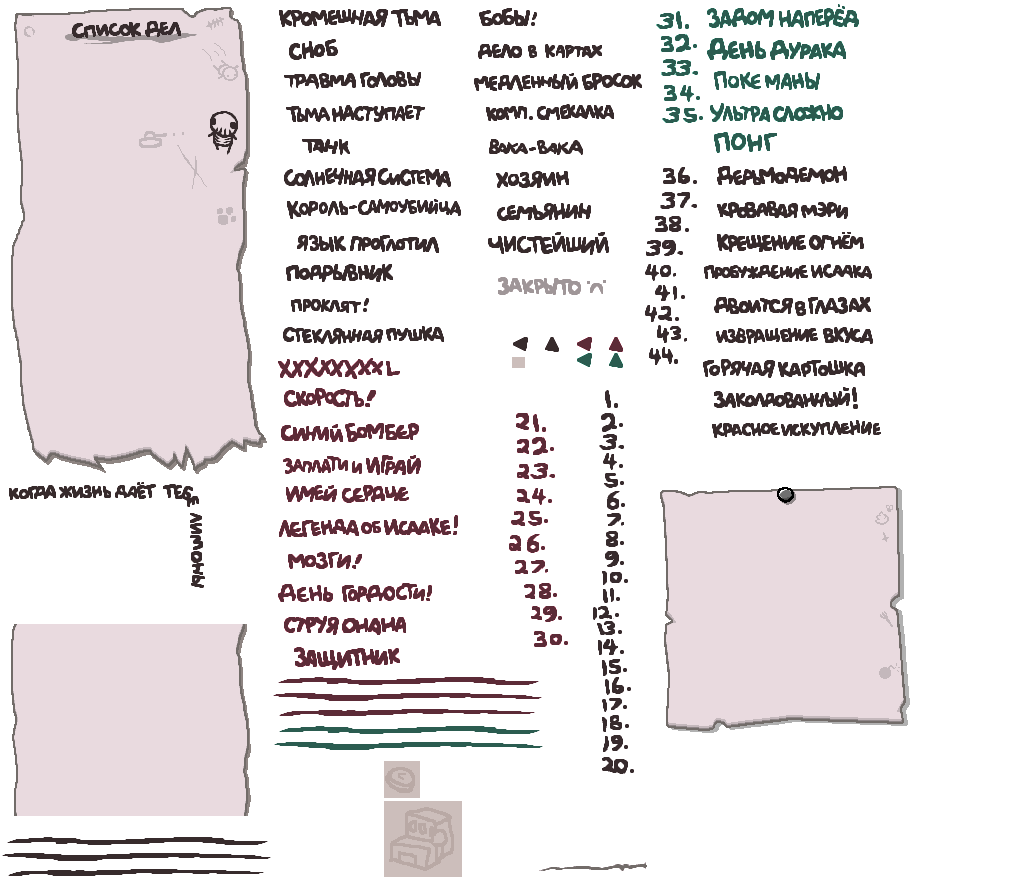 СПИСОК ДЕЛ
КОГДА ЖИЗНЬ ДАЁТ ТЕБЕ ЛИМОНЫ
КРОМЕШНАЯ ТЬМА
СНОБ
ТРАВМА ГОЛОВЫ
ТЬМА НАСТУПАЕТ
ТАНК
СОЛНЕЧНАЯ СИСТЕМА
КОРОЛЬ-САМОУБИЙЦА
ЯЗЫК ПРОГЛОТИЛ
ПОДРЫВНИК
ПРОКЛЯТ!
СТЕКЛЯННАЯ ПУШКА
XXXXXXXXL
СКОРОСТЬ!
СИНИЙ БОМБЕР
ЗАПЛАТИ И ИГРАЙ
ИМЕЙ СЕРДЦЕ
ЛЕГЕНДА ОБ ИСААКЕ!
МОЗГИ!
ДЕНЬ ГОРДОСТИ!
СТРУЯ ОНАНА
ЗАЩИТНИК
БОБЫ!
ДЕЛО В КАРТАХ
МЕДЛЕННЫЙ БРОСОК
КОМП. СМЕКАЛКА
ВАКА-ВАКА
ХОЗЯИН
СЕМЬЯНИН
ЧИСТЕЙШИЙ
ЗАКРЫТО ^
21.
22.
23.
24.
25.
26.
27.
28.
29.
30.
1.
2.
3.
4.
5.
6.
7.
8.
9.
10.
11.
12.
13.
14.
15.
16.
17.
18.
19.
20.
31.
32.
33.
34.
35.
36.
37.
38.
39.
40.
41.
42.
43.
44.
ЗАДОМ НАПЕРЁД
ДЕНЬ ДУРАКА
ПОКЕМАНЫ
УЛЬТРА СЛОЖНО
ПОНГ
ДЕРЬМОДЕМОН
КРОВАВАЯ МЭРИ
КРЕЩЕНИЕ ОГНЁМ
ПРОБУЖДЕНИЕ ИСААКА
ДВОИТСЯ В ГЛАЗАХ
ИЗВРАЩЕНИЕ ВКУСА
ГОРЯЧАЯ КАРТОШКА
ЗАКОЛДОВАННЫЙ!
КРАСНОЕ ИСКУПЛЕНИЕ